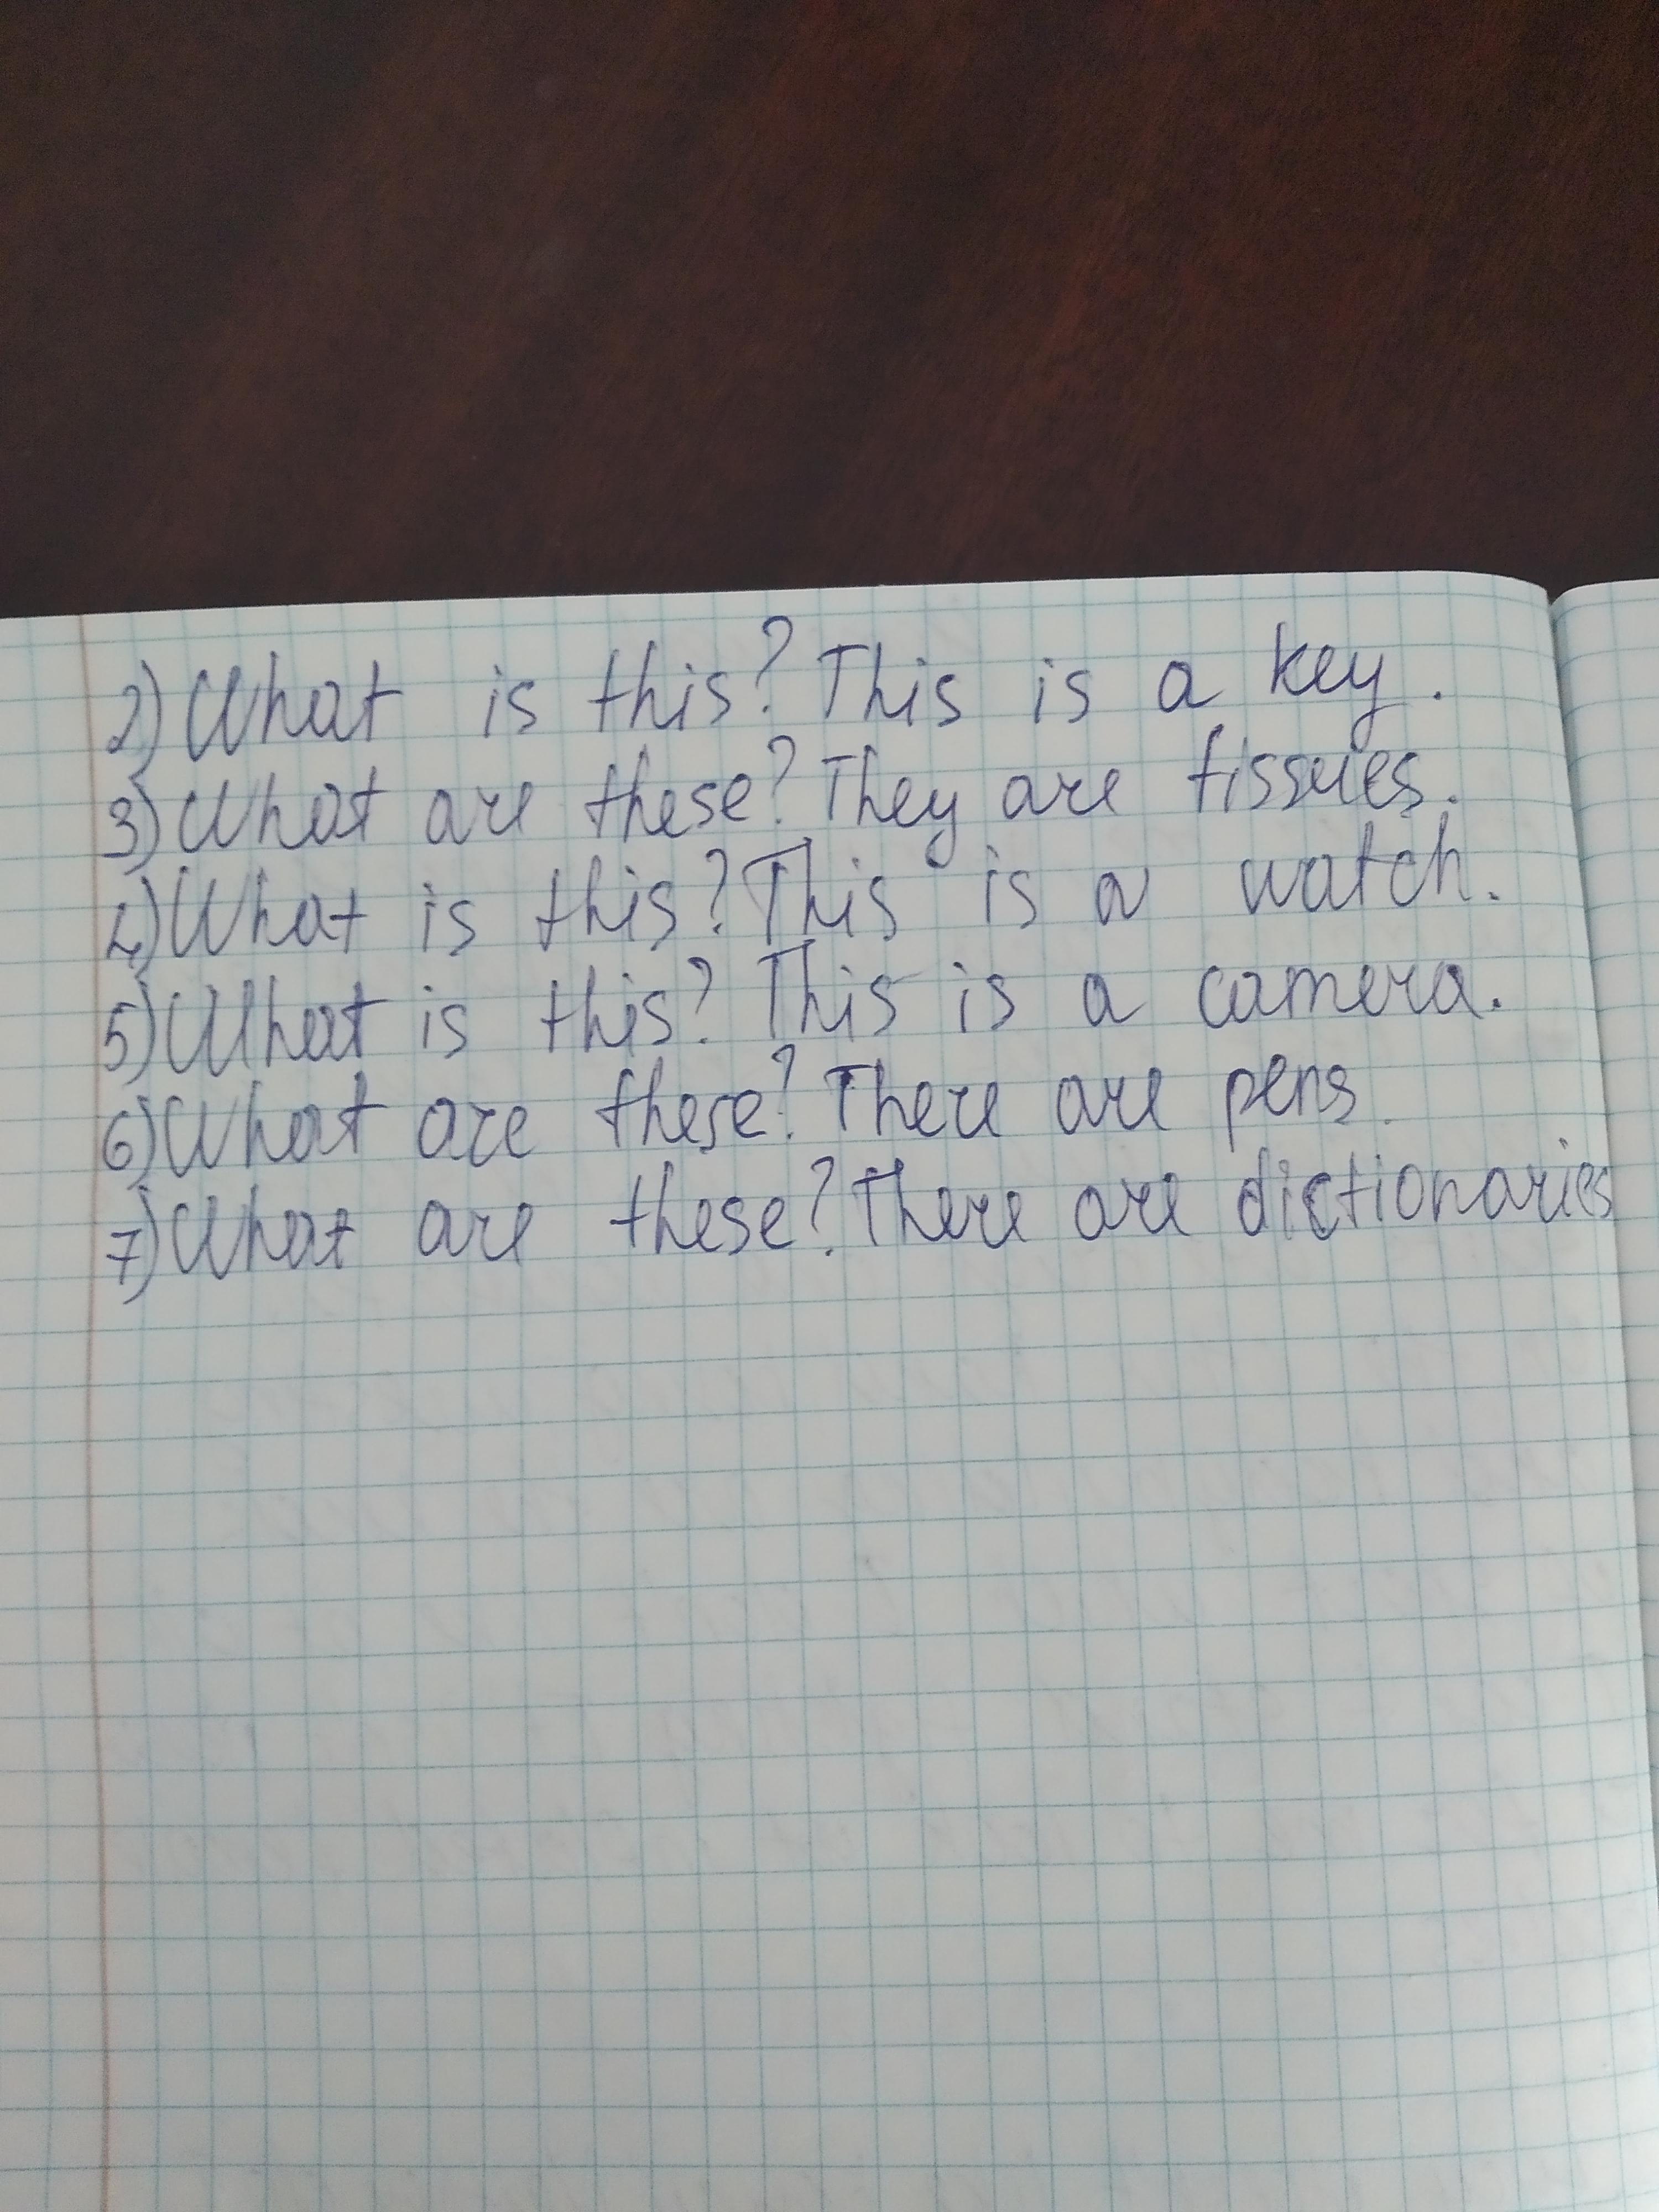 2) What is this? This is a key.
3) What are these? They are tissues.
4) What is this? This is a watch.
5) What is this? This is a camera.
6) What are these? There are pens.
7) What are these? There are dictionaries